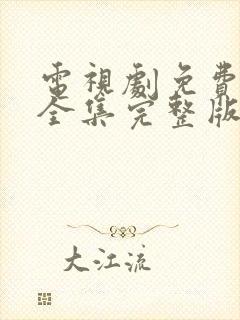 電視劇免費
全集完整版
大江流